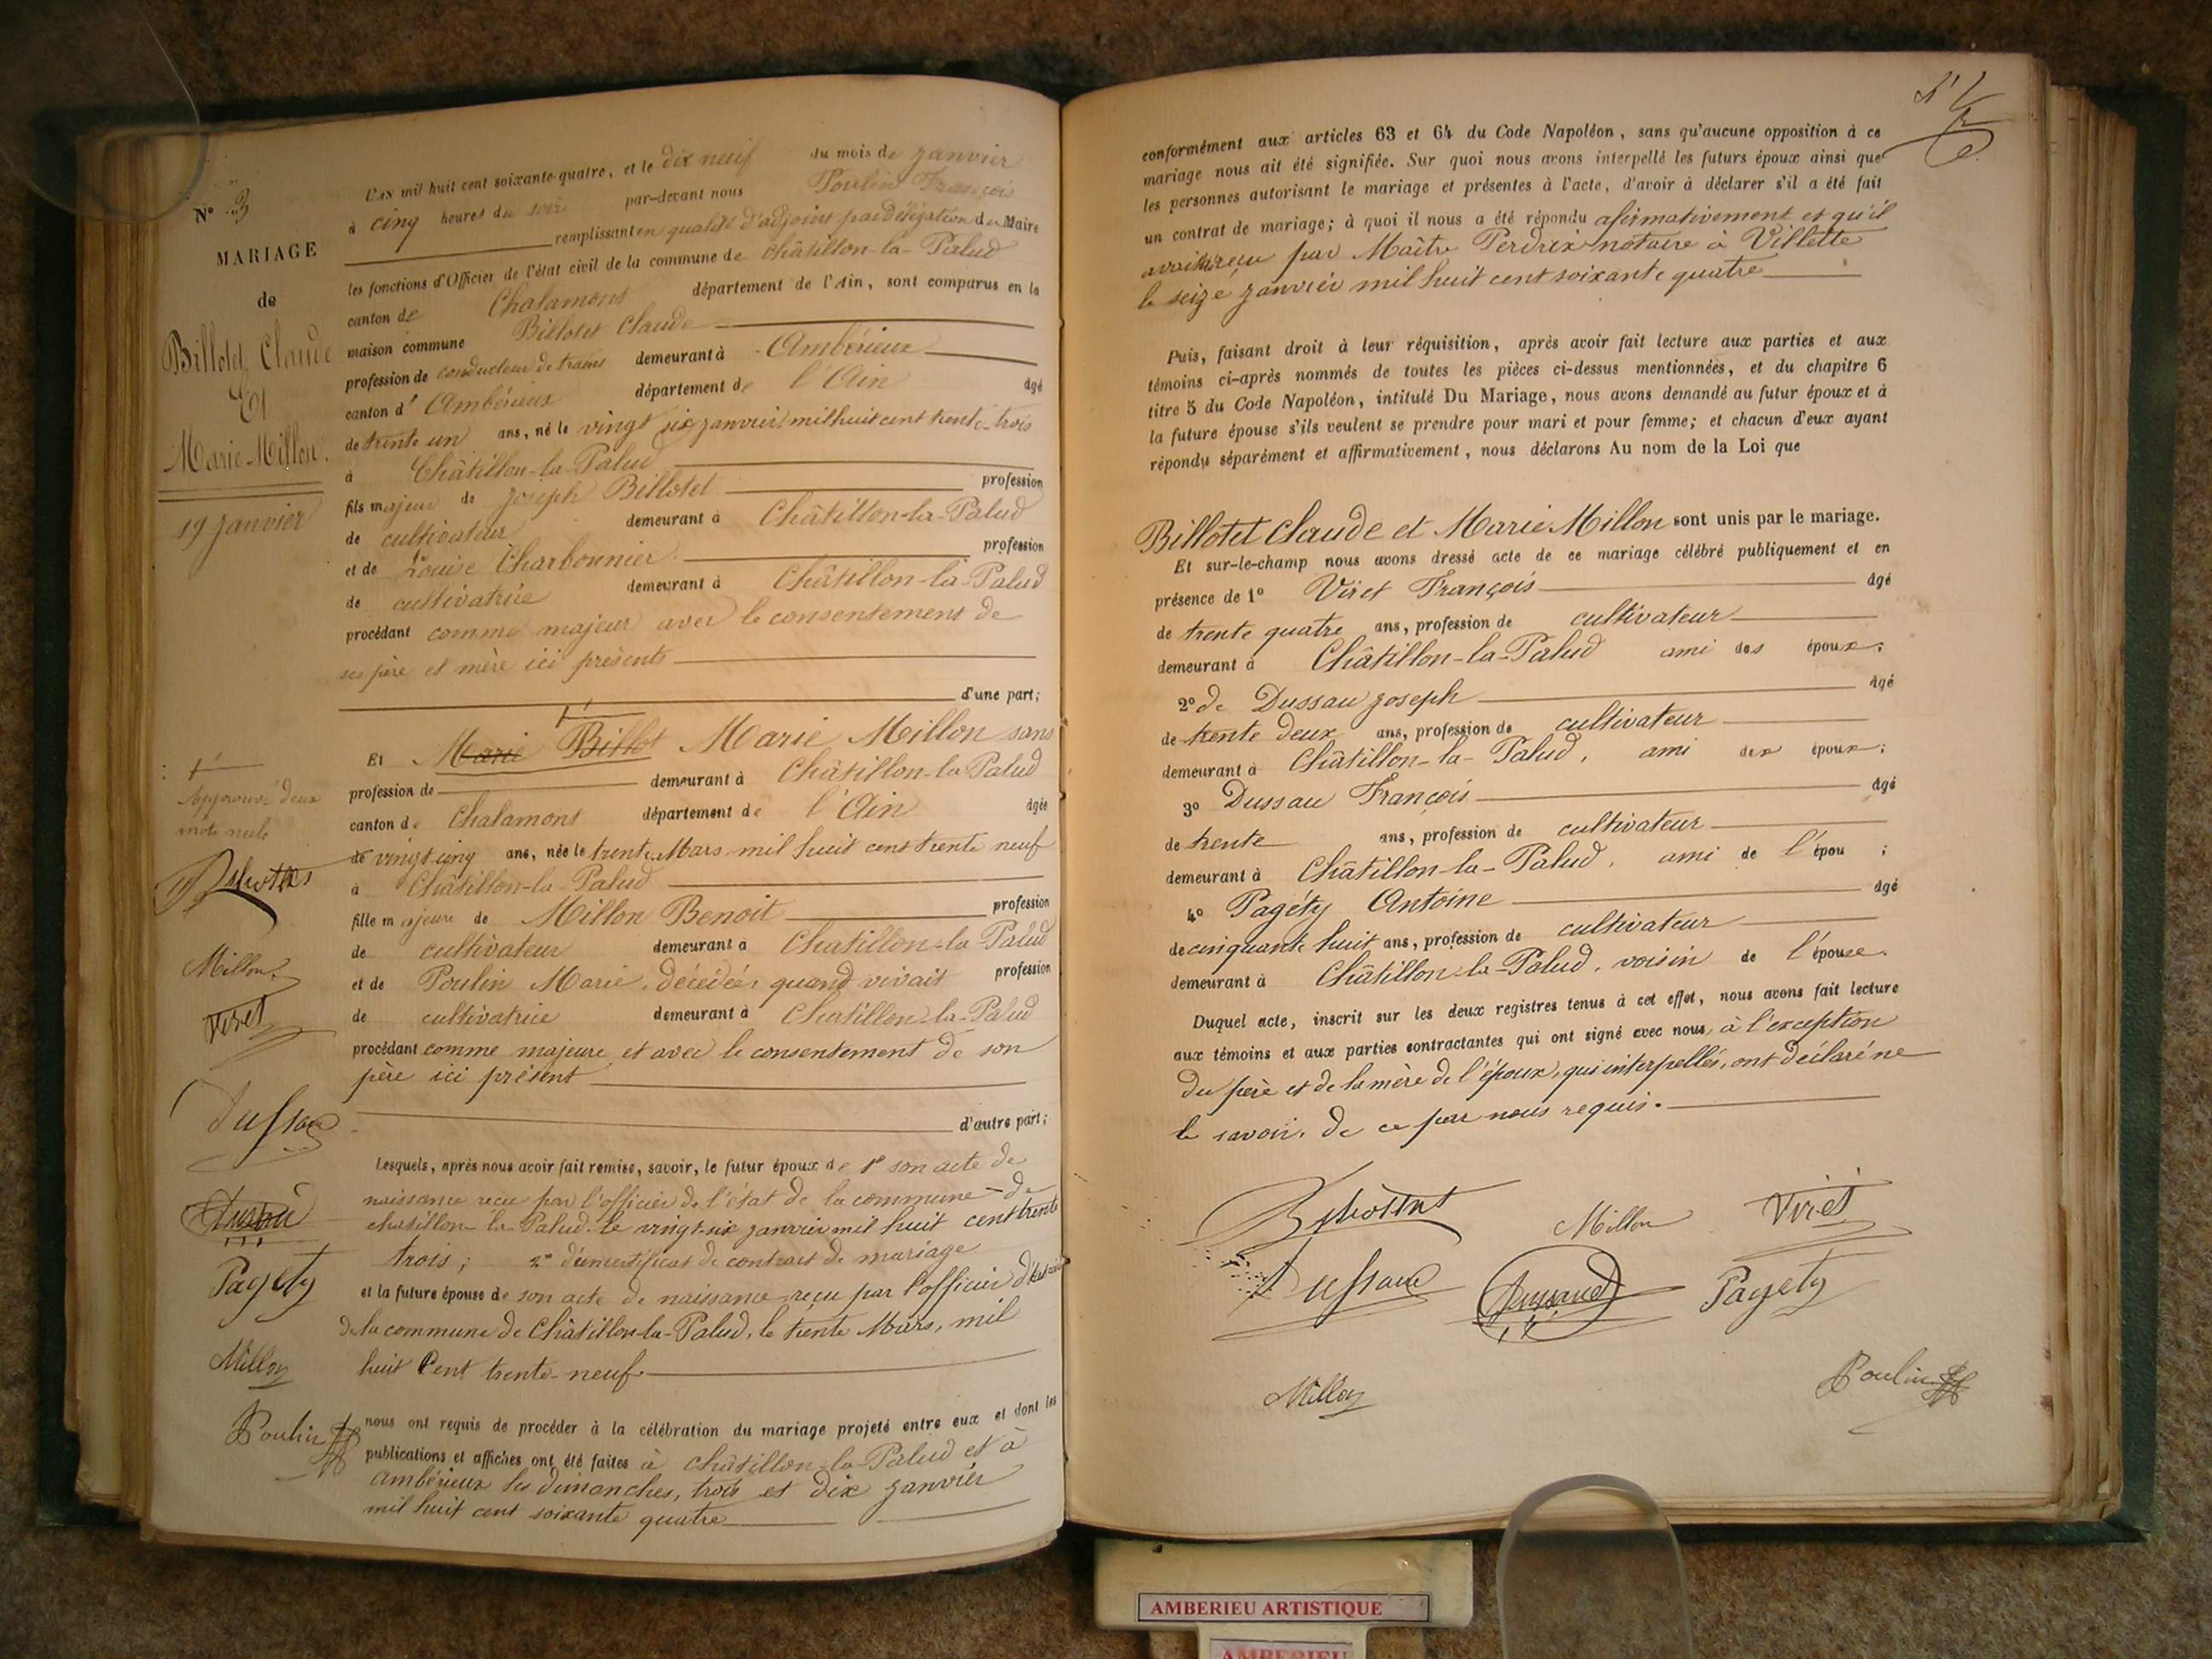 N° 3
MARIAGE
de
Billotet Claude
Et
Marie Millon.
19 janvier
Approuvé deux
mots nuls
Millon
Viret
Dussau
Pagéty
Millon
Poulin
L'an mil huit cent soixante-quatre, et le dix neuf du mois de janvier
à cinq heures du soir par-devant nous Poulin François
remplissant en qualité d'adjoint par délégation du Maire
les fonctions d'Officier de l'état civil de la commune de Châtillon-la-Palud
canton de Chalamont département de l'Ain, sont comparus en la
maison commune Billotet Claude
profession de conducteur de trains demeurant à Ambérieux
canton d' Ambérieux département de l'Ain âgé
de trente un ans, né le vingt six janvier mil huit cent trente-trois
à Châtillon-la-Palud
fils majeur de Joseph Billotet profession
de cultivateur demeurant à Châtillon-la-Palud
et de Louise Charbonnier profession
de cultivatrice demeurant à Châtillon-la-Palud
procédant comme majeur avec le consentement de
ses père et mère ici présents
d'une part;
Et Marie Billot Marie Millon sans
profession de demeurant à Châtillon-la-Palud
canton de Chalamont département de l'Ain âgée
de vingt cinq ans, née le trente Mars mil huit cent trente neuf
à Châtillon-la-Palud
fille majeure de Millon Benoit profession
de cultivateur demeurant à Chatillon-la-Palud
et de Poulin Marie, décédée, quand vivait profession
de cultivatrice demeurant à Chatillon-la-Palud
procédant comme majeure et avec le consentement de son
père ici présent
d'autre part;
Lesquels, après nous avoir fait remise, savoir, le futur époux de 1° son acte de
naissance reçu par l'officier de l'état de la commune de
chatillon-la-Palud le vingt-six janvier mil huit cent trente
trois; 2° d'un certificat de contrat de mariage
et la future épouse de son acte de naissance reçu par l'officier d'état civil
de la commune de Châtillon-la-Palud, le trente Mars, mil
huit Cent trente-neuf.
nous ont requis de procéder à la célébration du mariage projeté entre eux et dont les
publications et affiches ont été faites à châtillon-la-Palud et à
ambérieux les dimanches, trois et dix janvier
mil huit cent soixante quatre
conformément aux articles 63 et 64 du Code Napoléon, sans qu'aucune opposition à ce
mariage nous ait été signifiée. Sur quoi nous avons interpellé les futurs époux ainsi que
les personnes autorisant le mariage et présentes à l'acte, d'avoir à déclarer s'il a été fait
un contrat de mariage; à quoi il nous a été répondu afirmativement et qu'il
avait été reçu par Maître Perdrix notaire à Villette
le seize janvier mil huit cent soixante quatre
Puis, faisant droit à leur réquisition, après avoir fait lecture aux parties et aux
témoins ci-après nommés de toutes les pièces ci-dessus mentionnées, et du chapitre 6
titre 5 du Code Napoléon, intitulé Du Mariage, nous avons demandé au futur époux et à
la future épouse s'ils veulent se prendre pour mari et pour femme; et chacun d'eux ayant
répondu séparément et affirmativement, nous déclarons Au nom de la Loi que
Billotet Claude et Marie Millon sont unis par le mariage.
Et sur-le-champ nous avons dressé acte de ce mariage célébré publiquement et en
présence de 1° Viret François âgé
de trente quatre ans, profession de cultivateur
demeurant à Châtillon-la-Palud ami des époux;
2° de Dussau Joseph âgé
de trente deux ans, profession de cultivateur
demeurant à Châtillon-la-Palud, ami des époux;
3° Dussau François âgé
de trente ans, profession de cultivateur
demeurant à Châtillon-la-Palud, ami de l'épou ;
4° Pagéty Antoine âgé
de cinquante huit ans, profession de cultivateur
demeurant à Châtillon-la-Palud, voisin de l'épouse.
Duquel acte, inscrit sur les deux registres tenus à cet effet, nous avons fait lecture
aux témoins et aux parties contractantes qui ont signé avec nous, à l'exception
du père et de la mère de l'époux, qui interpellés, ont déclaré ne
le savoir, de ce par nous requis.
Billotet Millon Viret
Dussau Dussaud Pagéty
Millon Poulin
AMBERIEU ARTISTIQUE
AMBERIEU